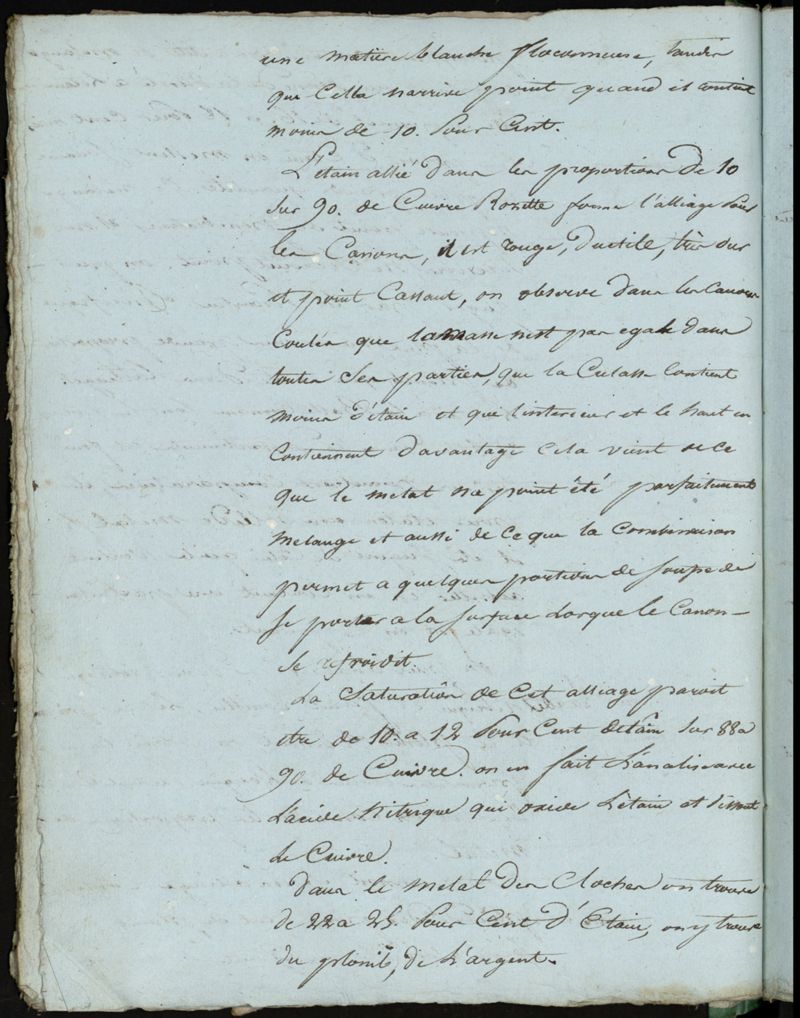 une matiere blanche floconneuse, tandis
que cella narrive point quand il contient
moins de 10. pour Cent.
L'étain allié dans les proportions de 10
sur 90. de Cuivre Rozette forme l'alliage pour
les Canons, il est rouge, ductile, très dur
et point Cassant, on observe dans les Canons
Coulés que la masse nest pas egale dans
toutes ses parties, que la Culasse Contient
moins d'étain et que linterieur et le haut en
Contiennent d'avantage Cela vient de ce
que le metal na point été parfaitement
melangé et aussi de ce que la Combinaison
permet a quelques portions de
se porter a la surface lorsque le Canon
se refroidit.
La Saturation de Cet alliage paroit
etre de 10. a 12 pour Cent detain sur 88 a
90. de Cuivre. on en fait L'analise avec
L'acide Nitrique qui oxide L'étain et dissout
le Cuivre.
Dans le metal des Cloches on trouve
de 22 a 25 pour Cent d'Etain, on y trouve
du plomb, de L'argent.